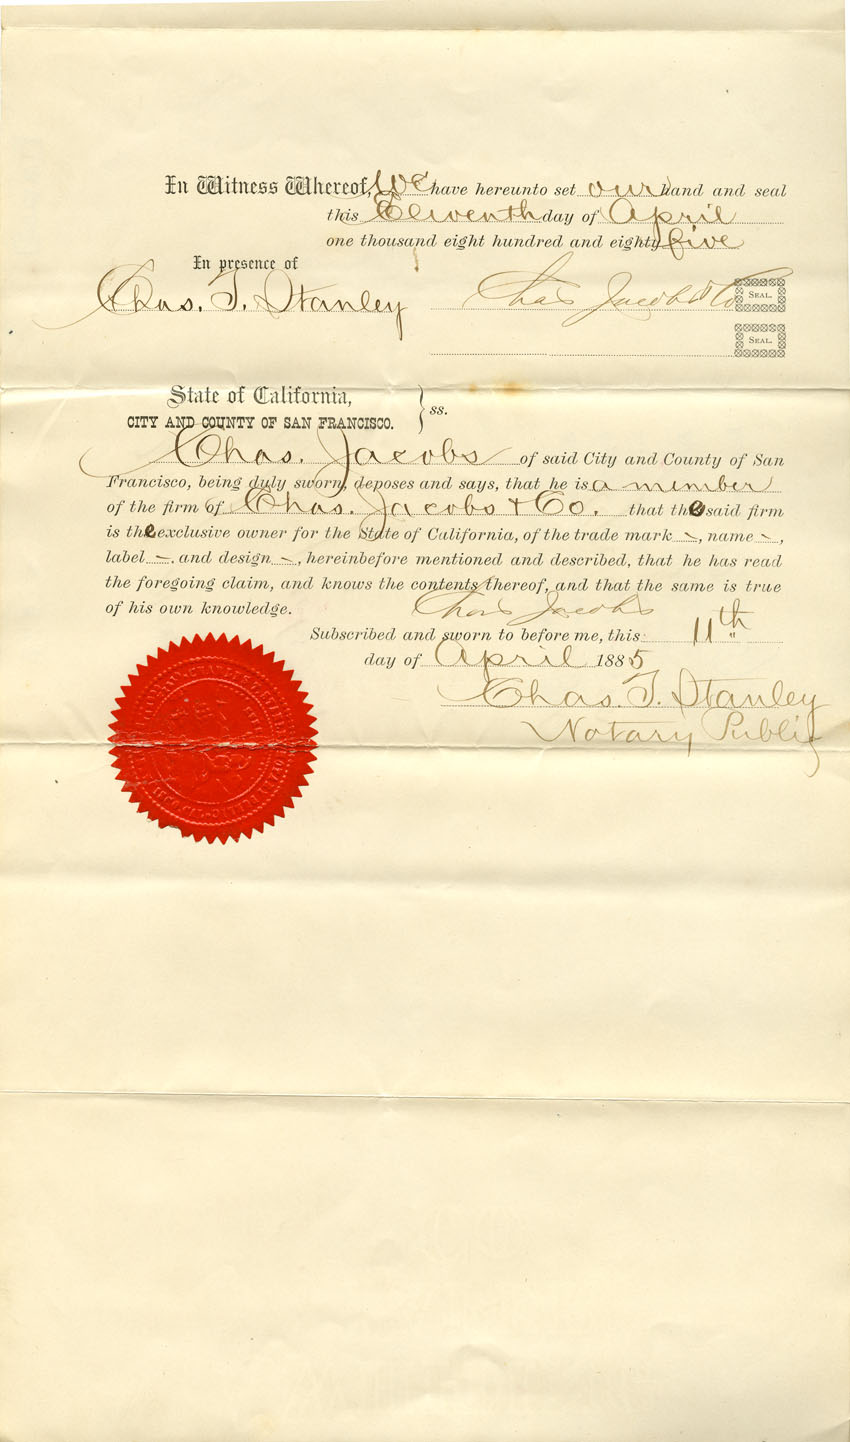 In Witness Whereof, We have hereunto set our hand and seal
this Eleventh day of April
one thousand eight hundred and eighty five
In presence of
Chas. T. Stanley
Chas Jacobs & Co
SEAL.
SEAL.
State of California,
CITY AND COUNTY OF SAN FRANCISCO.
} ss.
Chas. Jacobs of said City and County of San
Francisco, being duly sworn, deposes and says, that he is a member
of the firm of Chas. Jacobs & Co. that the said firm
is the exclusive owner for the State of California, of the trade mark ~, name ~,
label ~, and design ~, hereinbefore mentioned and described, that he has read
the foregoing claim, and knows the contents thereof, and that the same is true
of his own knowledge.
Chas Jacobs
Subscribed and sworn to before me, this 11th
day of April 1885
Chas. T. Stanley
Notary Public